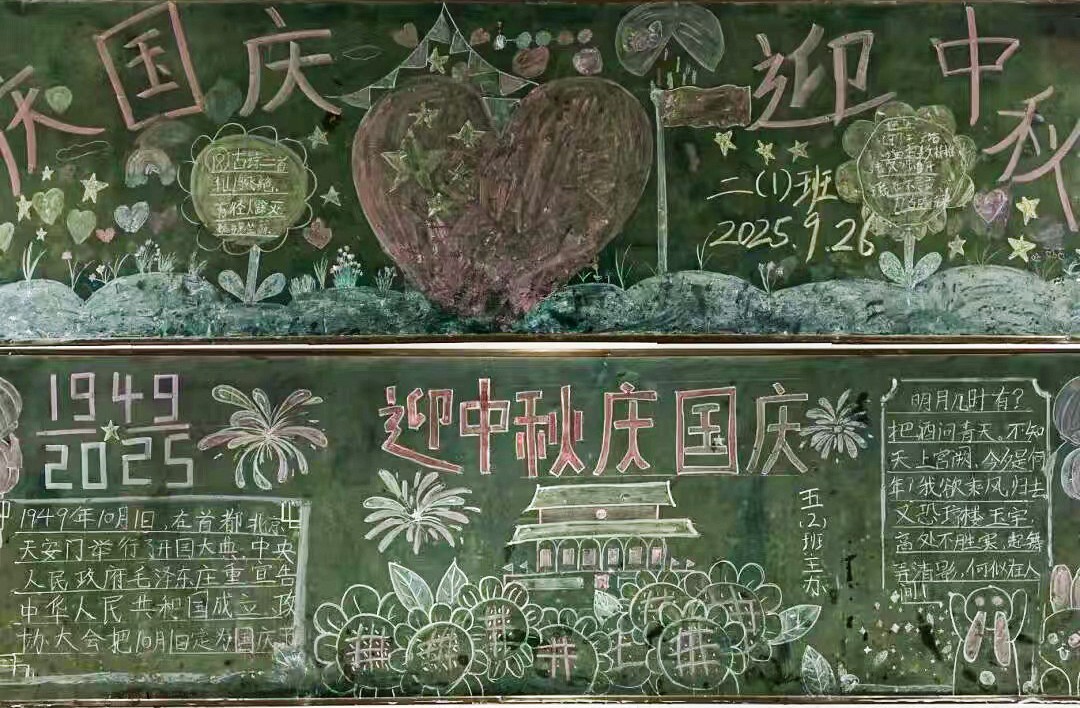 庆国庆
迎中秋
18古诗二首
二(1)班
2025.9.26
1949
2025
迎中秋庆国庆
五(2)班王亦
1949年10月1日,在首都北京
天安门举行开国大典,中央
人民政府毛泽东庄重宣告
中华人民共和国成立,政
协大会把10月1日定为国庆
明月几时有?
把酒问青天。不知
天上宫阙,今夕是何
年?我欲乘风归去
又恐琼楼玉宇,
高处不胜寒,起舞
弄清影,何似在人
间!